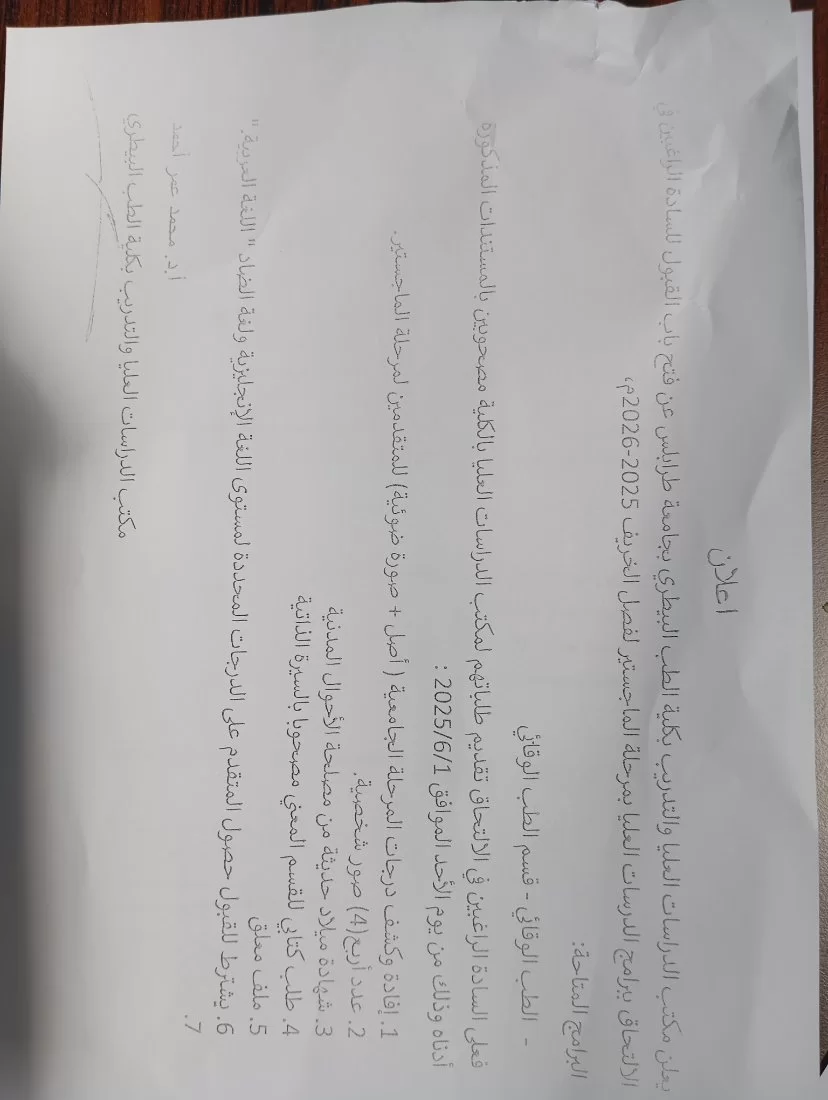 اعلان
يعلن مكتب الدراسات العليا والتدريب بكلية الطب البيطري بجامعة طرابلس عن فتح باب القبول للسادة الراغبين في
الالتحاق ببرامج الدرسات العليا بمرحلة الماجستير لفصل الخريف 2025-2026م،
البرامج المتاحة:
- الطب الوقائي - قسم الطب الوقائي
فعلى السادة الراغبين في الالتحاق تقديم طلباتهم لمكتب الدراسات العليا بالكلية مصحوبين بالمستندات المذكورة
أدناه وذلك من يوم الأحد الموافق 2025/6/1 :
1. إفادة وكشف درجات المرحلة الجامعية (أصل + صورة ضوئية) للمتقدمين لمرحلة الماجستير.
2. عدد أربع (4) صور شخصية.
3. شهادة ميلاد حديثة من مصلحة الأحوال المدنية
4. طلب كتابي للقسم المعني مصحوبا بالسيرة الذاتية
5. ملف معلق
6. يشترط للقبول حصول المتقدم على الدرجات المحددة لمستوى اللغة الإنجليزية ولغة الضاد " اللغة العربية".
7.
أ.د. محمد عمر أحمد
مكتب الدراسات العليا والتدريب بكلية الطب البيطري